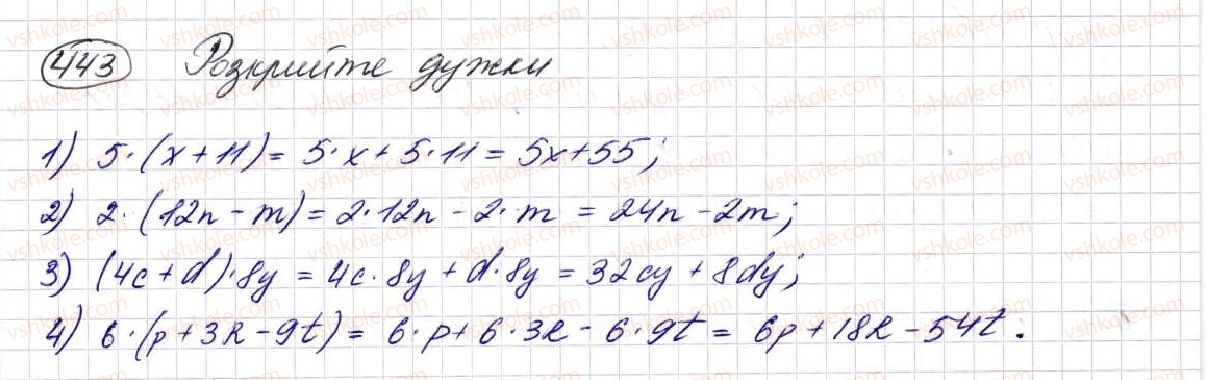 443 Розкрийте дужки
1) 5·(x+11)= 5·x+5·11= 5x+55;
2) 2·(12n-m)=2·12n-2·m=24n-2m;
3) (4c+d)·8y=4c·8y+d·8y=32cy+8dy;
4) 6·(p+3k-9t)=6·p+6·3k-6·9t=6p+18k-54t.